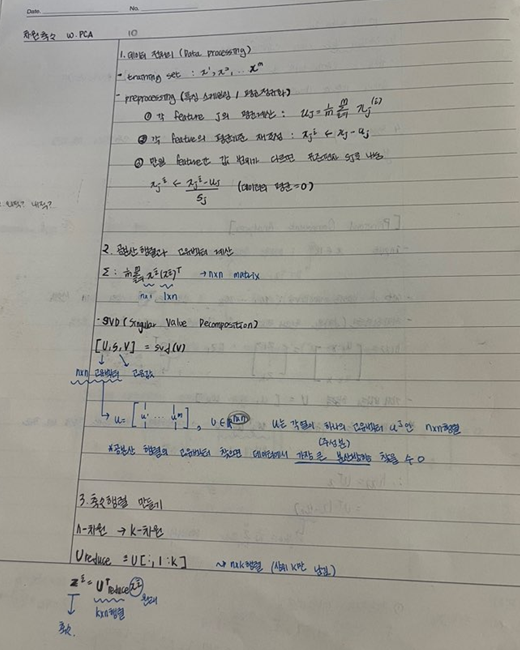 Date No.
차원축소 w. PCA 10
1. 데이터 전처리 (Data processing)
- training set : x¹, x², ... xᵐ
- preprocessing (특성 스케일링 / 평균정규화)
① 각 feature j의 평균계산 : uj = 1/m Σ xj⁽ⁱ⁾
② 각 feature의 평균으로 재설정 : xjⁱ ← xj - uj
③ 만약 feature간 값 범위가 다르면 표준편차 sj로 나눔
xjⁱ ← (xjⁱ - uj) / sj (데이터의 평균 = 0)
2. 공분산 행렬과 고유벡터 계산
Σ : 1/m Σ xⁱ(xⁱ)ᵀ → n×n matrix
n×1 1×n
- SVD (Singular Value Decomposition)
[U, S, V] = svd(V)
n×n 고유벡터 고유값
→ u = [u¹ uᵐ] , U ∈ ℝⁿˣⁿ U는 각 열이 하나의 고유벡터 uʲ인 n×n행렬
(주성분)
*공분산 행렬의 고유벡터 찾으면 데이터에서 가장 큰 분산방향 찾을 수 O
3. 축소행렬 만들기
n-차원 → k-차원
Ureduce = U[:, 1:k] → n×k행렬 (상위 k만 남김)
zⁱ = Uᵀreduce xⁱ 원래
k×n행렬
축소